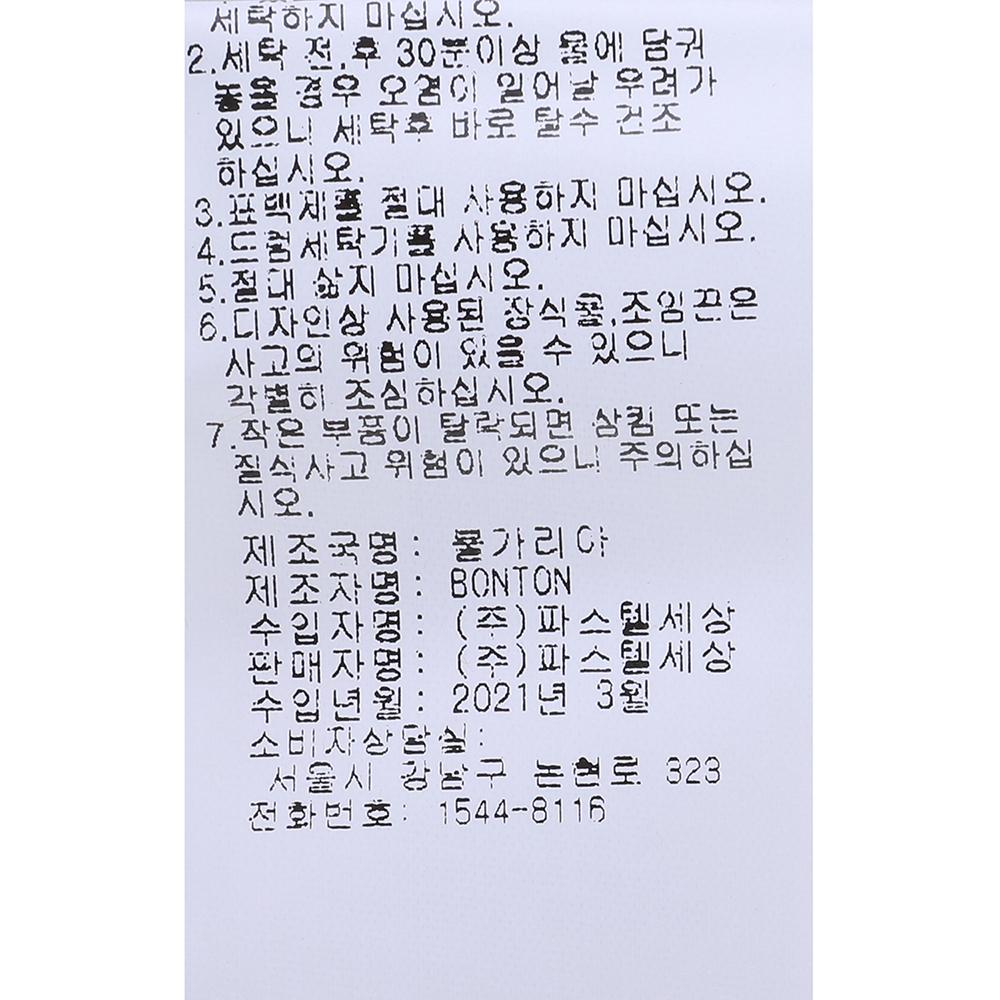 세탁하지 마십시오.
2.세탁 전,후 30분이상 물에 담궈
놓을 경우 오염이 일어날 우려가
있으니 세탁후 바로 탈수 건조
하십시오.
3.표백제를 절대 사용하지 마십시오.
4.드럼세탁기를 사용하지 마십시오.
5.절대 삶지 마십시오.
6.디자인상 사용된 장식물,조임끈은
사고의 위험이 있을 수 있으니
각별히 조심하십시오.
7.작은 부품이 탈락되면 삼킴 또는
질식사고 위험이 있으니 주의하십
시오.
제조국명: 불가리아
제조자명: BONTON
수입자명: (주)파스텔세상
판매자명: (주)파스텔세상
수입년월: 2021년 3월
소비자상담실:
서울시 강남구 논현로 323
전화번호: 1544-8116